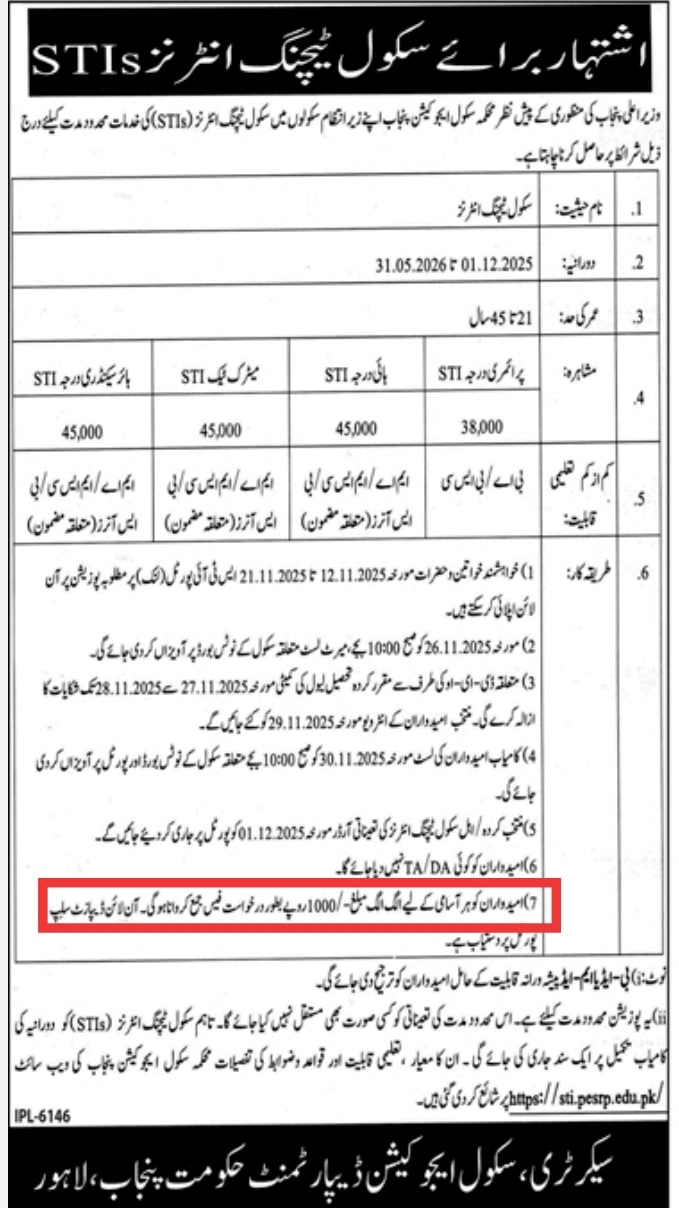 اشتہار برائے سکول ٹیچنگ انٹرنز STIs
وزیر اعلی پنجاب کی منظوری کے پیش نظر محکمہ سکول ایجوکیشن پنجاب اپنے زیر انتظام سکولوں میں سکول ٹیچنگ انٹرنز (STIs) کی خدمات محدود مدت کیلئے درج
ذیل شرائط پر حاصل کرنا چاہتا ہے۔
1. نام حیثیت: سکول ٹیچنگ انٹرنز
2. دورانیہ: 01.12.2025 تا 31.05.2026
3. عمر کی حد: 21 تا 45 سال
4. مشاہرہ: پرائمری درجہ STI ہائی درجہ STI میٹرک ٹیک STI ہائر سیکنڈری درجہ STI
38,000 45,000 45,000 45,000
5. کم از کم تعلیمی قابلیت: بی اے/بی ایس سی ایم اے/ایم ایس سی/بی ایم اے/ایم ایس سی/بی ایم اے/ایم ایس سی/بی
ایس آنرز (متعلقہ مضمون) ایس آنرز (متعلقہ مضمون) ایس آنرز (متعلقہ مضمون)
6. طریقہ کار: 1) خواہشمند خواتین و حضرات مورخہ 12.11.2025 تا 21.11.2025 ایس ٹی آئی پورٹل (لنک) پر مطلوبہ پوزیشن پر آن
لائن اپلائی کر سکتے ہیں۔
2) مورخہ 26.11.2025 کو صبح 10:00 بجے، میرٹ لسٹ متعلقہ سکول کے نوٹس بورڈ پر آویزاں کر دی جائے گی۔
3) متعلقہ ڈی-ای-او کی طرف سے مقرر کردہ تحصیل لیول کی کمیٹی مورخہ 27.11.2025 سے 28.11.2025 تک شکایات کا
ازالہ کرے گی۔ منتخب امیدواران کے انٹرویو مورخہ 29.11.2025 کو کئے جائیں گے۔
4) کامیاب امیدواران کی لسٹ مورخہ 30.11.2025 کو صبح 10:00 بجے متعلقہ سکول کے نوٹس بورڈ اور پورٹل پر آویزاں کر دی
جائے گی۔
5) منتخب کردہ/اہل سکول ٹیچنگ انٹرنز کی تعیناتی آرڈر مورخہ 01.12.2025 کو پورٹل پر جاری کر دیئے جائیں گے۔
6) امیدواران کو کوئی TA/DA نہیں دیا جائے گا۔
7) امیدواران کو ہر آسامی کے لیے الگ الگ مبلغ -/1000 روپے بطور درخواست فیس جمع کروانا ہو گی۔ آن لائن ڈیپازٹ سلپ
پورٹل پر دستیاب ہے۔
نوٹ: i) بی-ایڈ یا ایم-ایڈ پیشہ ورانہ قابلیت کے حامل امیدواران کو ترجیح دی جائے گی۔
ii) یہ پوزیشن محدود مدت کیلئے ہے۔ اس محدود مدت کی تعیناتی کو کسی صورت بھی مستقل نہیں کیا جائے گا۔ تاہم سکول ٹیچنگ انٹرنز (STIs) کو دورانیہ کی
کامیاب تکمیل پر ایک سند جاری کی جائے گی۔ ان کا معیار، تعلیمی قابلیت اور قواعد و ضوابط کی تفصیلات محکمہ سکول ایجوکیشن پنجاب کی ویب سائٹ
https://sti.pesrp.edu.pk/ پر شائع کر دی گئی ہیں۔
IPL-6146
سیکرٹری، سکول ایجوکیشن ڈیپارٹمنٹ حکومت پنجاب، لاہور